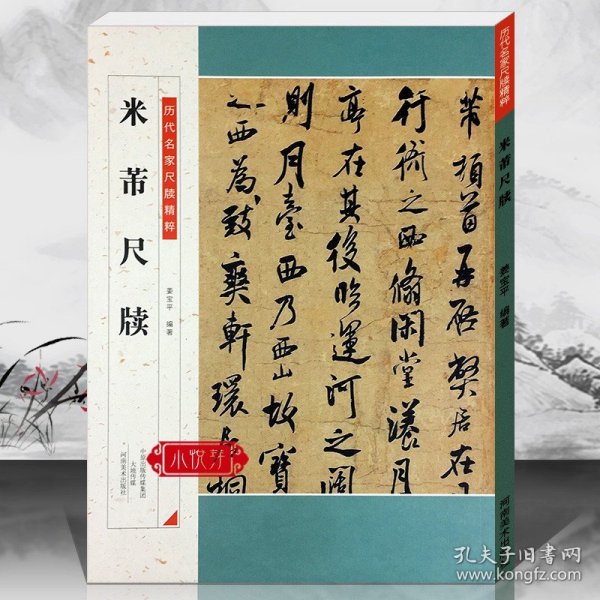 历代名家尺牍精粹
米芾尺牍
姜宝平 编著
中原出版传媒集团
大地传媒
河南美术出版社
芾頓首再啓弊居在
行衙之西脩閑堂漾月
亭在其後臨運河之闊
則月臺西乃西山故寶
之西為致爽軒環居桐
历代名家尺牍精粹
米芾尺牍
姜宝平 编著
河南美术出
小悦芽
孔夫子旧书网
www.kongfz.com